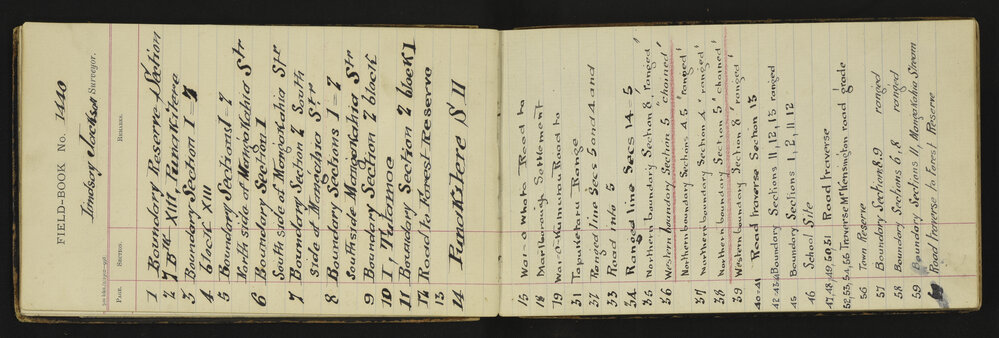 FIELD-BOOK No. 1420
Lindsay Jackson Surveyor.
PAGE. SECTION. REMARKS.
1 Boundary Reserve Section
2 7 Bk XIII, Punakitere
3 Boundary Section 1 - 7
4 block XIII
5 Boundary Section 1 - 7
North side of Mangakahia Str
6 Boundary Section 1
South side of Mangakahia Str
7 Boundary Section 2 South
side of Mangakahia Str
8 Boundary Sections 1 = 7
South side Mangakahia Str
9 Boundary Section 2 block
10 I, Tutamoe
11 Boundary Section 2 block I
12 Road to Forest Reserve
13
14 Punakitere S D II
15 Wai-o-whata Road to
18 Marlborough Settlement
19 Wai-o-Kumurau Road to
31 Tapuwharu Range
32 Ranged line Secs 5 and 4 and
33 Road into 5
34 Ranged line Secs 14 = 5
35 Northern boundary Section 8, ranged'
36 Western boundary Section 5 'chained'
Northern boundary Sections 4 5 'ranged'
37 Northern boundary Section 4 'ranged'
38 Northern boundary Section 5 'chained'
39 Western boundary Section 8 'ranged
40-41 Road traverse Section 13
42-43-44 Boundary Sections 11, 12, 13 ranged
45 Boundary Sections 1, 2, 11 12
46 School Site
47, 48, 49, 50, 51 Road traverse
52, 53, 54, 55 Traverse Mr Kensington road grade
56 Town Reserve
57 Boundary Section 8, 9 ranged
58 Boundary Sections 6, 8 ranged
59 Boundary Sections 11, Mangakahia Stream
60 Road traverse to Forest Reserve